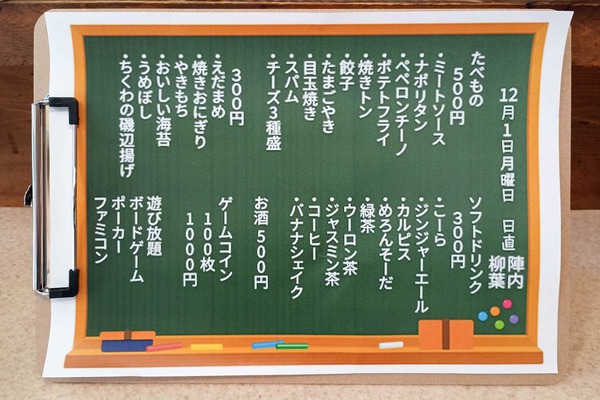 12月1日月曜日 日直 陣内
柳葉
たべもの
500円
・ミートソース
・ナポリタン
・ペペロンチーノ
・ポテトフライ
・焼きトン
・餃子
・たまごやき
・目玉焼き
・スパム
・チーズ3種盛
300円
・えだまめ
・焼きおにぎり
・やきもち
・おいしい海苔
・うめぼし
・ちくわの磯辺揚げ
ソフトドリンク
300円
・こーら
・ジンジャーエール
・カルピス
・めろんそーだ
・緑茶
・ウーロン茶
・ジャスミン茶
・コーヒー
・バナナシェイク
お酒 500円
ゲームコイン
100枚
1000円
遊び放題
ボードゲーム
ポーカー
ファミコン